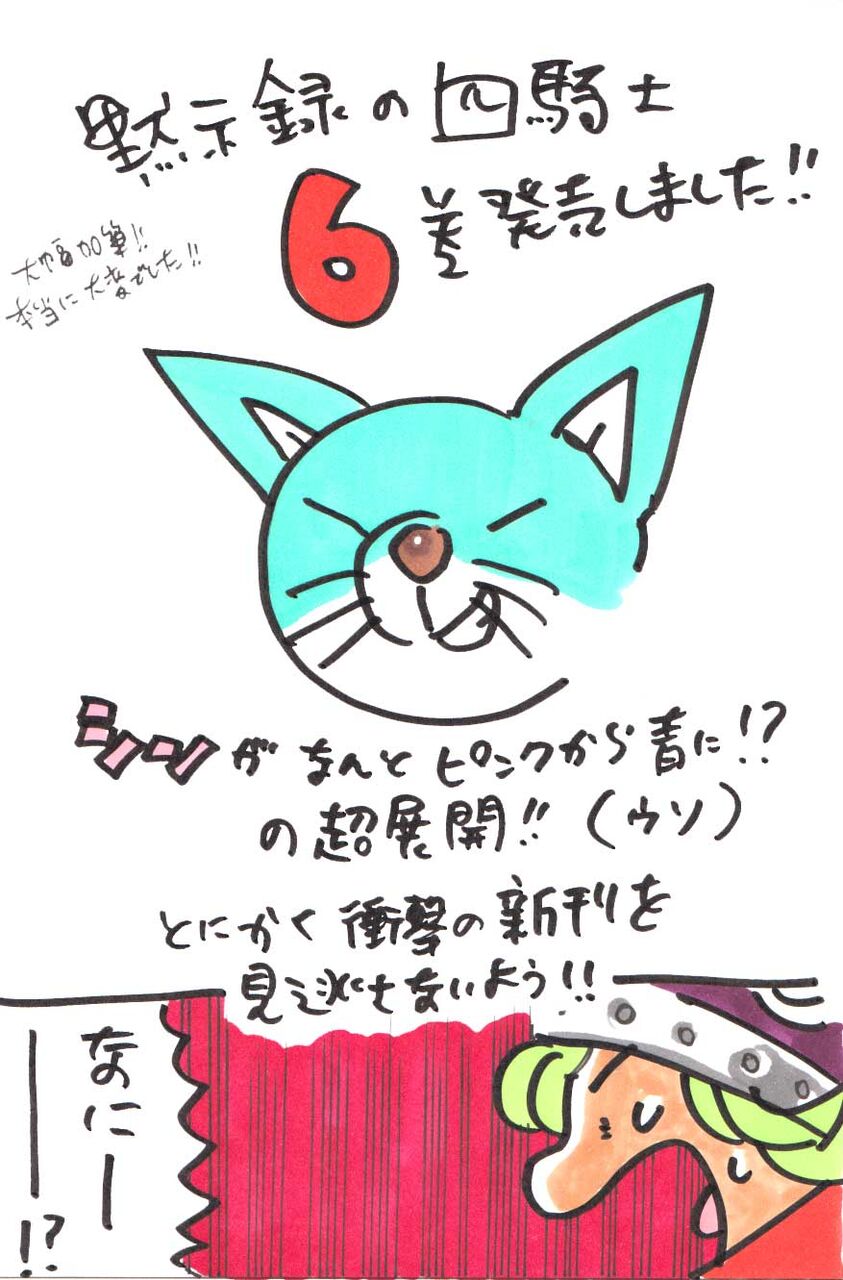 黙示録の四騎士
6巻発売しました!!
大幅加筆!!
本当に大変でした!!
シンがなんとピンクから青に!?
の超展開!!(ウソ)
とにかく衝撃の新刊を
見逃せないよう!!
なにー
ー!?